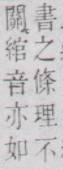 書之條理不
關綰音亦如